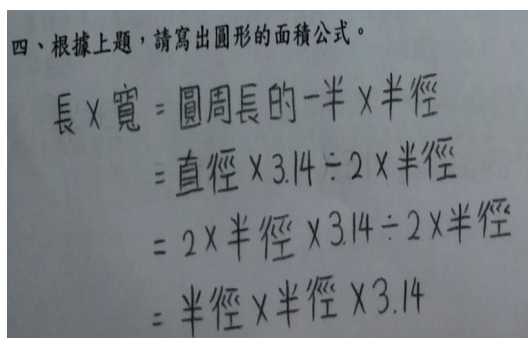 四、根據上題，請寫出圓形的面積公式。
長×寬=圓周長的一半×半徑
=直徑×3.14÷2×半徑
=2×半徑×3.14÷2×半徑
=半徑×半徑×3.14